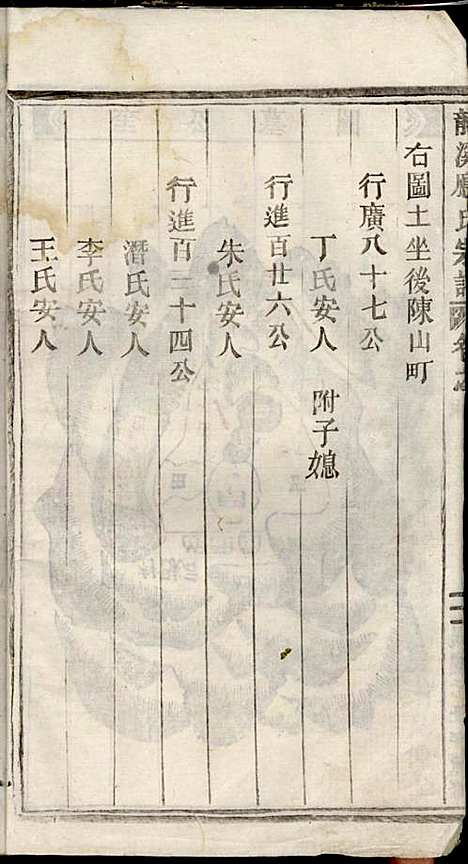 右圖土坐後陳山町
行廣八十七公
丁氏安人　附子媳
行進百廿六公
朱氏安人
行進百三十四公
潛氏安人
李氏安人
王氏安人